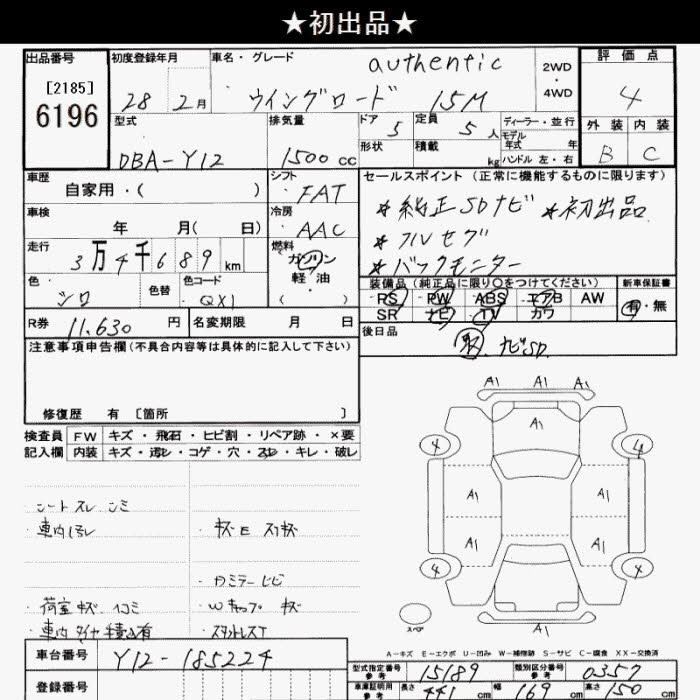 ★初出品★
出品番号
初度登録年月
車名・グレード
authentic
2WD
・
4WD
評価点
[2185]
6196
28 2月
ウイングロード 15M
4
外装 内装
B C
型式
DBA-Y12
排気量
1500 cc
ドア 5
定員 5 人
ディーラー・並行
モデル
年式 年
形状
積載 kg
ハンドル 左・右
車歴
自家用・( )
シフト
FAT
セールスポイント (正常に機能するものに限ります)
*純正SDナビ *初出品
*フルセグ
*バックモニター
車検
年 月( 日)
冷房
AAC
走行
3万4千689km
燃料
ガソリン
軽・油
( )
色
シロ
色替
色コード
QX1
装備品 (純正品に限り〇をつけてください)
新車保証書
PS PW ABS エアB AW
SR ナビ TV カワ
有・無
R券 11,630 円
名変期限 月 日
後日品
取 ナビSD
注意事項申告欄(不具合内容等は具体的に記入して下さい)
修復歴 有 〔箇所 〕
検査員
記入欄
FW キズ・飛石・ヒビ割・リペア跡・×要
内装 キズ・汚レ・コゲ・穴・スレ・キレ・破レ
シートスレ シミ
車内汚レ
荷室キズ
A1 A1 A1
A1
4 4
A1 A1
A1 A1
4 4
A1
スペア
A-キズ E-エクボ U-凹み W-補修跡 S-サビ C-腐食 XX-交換済
車台番号 Y12-185224
登録番号
型式指定番号
参考
15189
類別区分番号
参考
0357
車庫証明用
参考
長さ 441 cm
幅 169 cm
高さ 150 cm